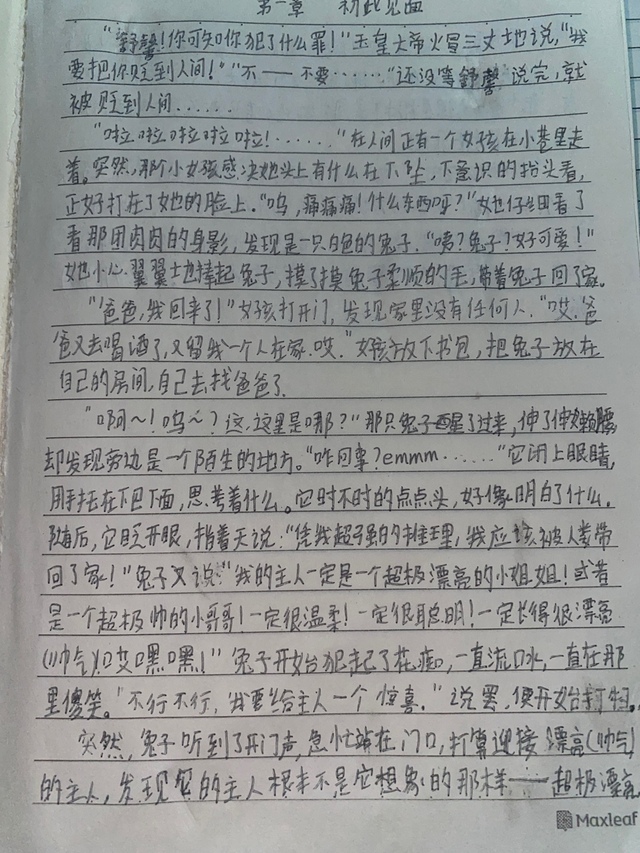 第一章 初此见面
"舒馨！你可知你犯了什么罪！"玉皇大帝火冒三丈地说，"我
要把你贬到人间！""不——不要……"还没等舒馨说完，就
被贬到人间……
"啦啦啦啦啦！……"在人间正有一个女孩在小巷里走
着。突然，那个小女孩感决她头上有什么在下坠，下意识的抬头看，
正好打在了她的脸上。"呜，痛痛痛！什么东西呀？"她仔细看了
看那团肉肉的身影，发现是一只白色的兔子。"咦？兔子？好可爱！"
她小心翼翼地捧起兔子，摸了摸兔子柔顺的毛，带着兔子回了家。
"爸爸，我回来了！"女孩打开门，发现家里没有任何人。"哎，爸
爸又去喝酒了，又留我一个人在家，哎。"女孩放下书包，把兔子放在
自己的房间，自己去找爸爸了。
"啊～！呜～？这，这里是哪？"那只兔子醒了过来，伸了伸懒腰，
却发现旁边是一个陌生的地方。"咋回事？emmm……"它闭上眼睛，
用手托在下巴下面，思考着什么。它时不时的点点头，好像明白了什么。
随后，它眨开眼，指着天说："凭我超强的推理，我应该被人类带
回了家！"兔子又说："我的主人一定是一个超极漂亮的小姐姐！或者
是一个超极帅的小哥哥！一定很温柔！一定很聪明！一定长得很漂亮
(帅气)！哎嘿嘿！"兔子开始犯起了花痴，一直流口水，一直在那
里傻笑。"不行不行，我要给主人一个惊喜。"说罢，便开始打扫。
突然，兔子听到了开门声，急忙站在门口，打算迎接漂亮(帅气)
的主人，发现的主人根本不是它想象的那样——超极漂亮
Maxleaf